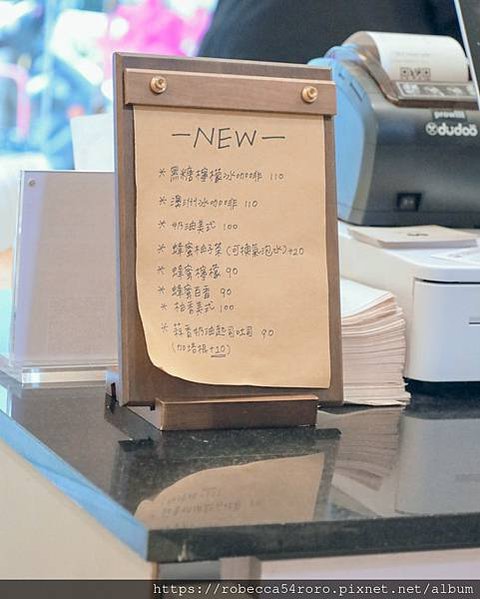 -NEW-
* 黑糖檸檬冰咖啡 110
* 澳洲冰咖啡 110
* 奶油美式 100
* 蜂蜜柚子茶(可換氣泡水)+20
* 蜂蜜檸檬 90
* 蜂蜜百香 90
* 柚香美式 100
* 蒜香奶油起司吐司 90
(加培根+20)
prowill
dudoo
https://robecca54roro.pixnet.net/album